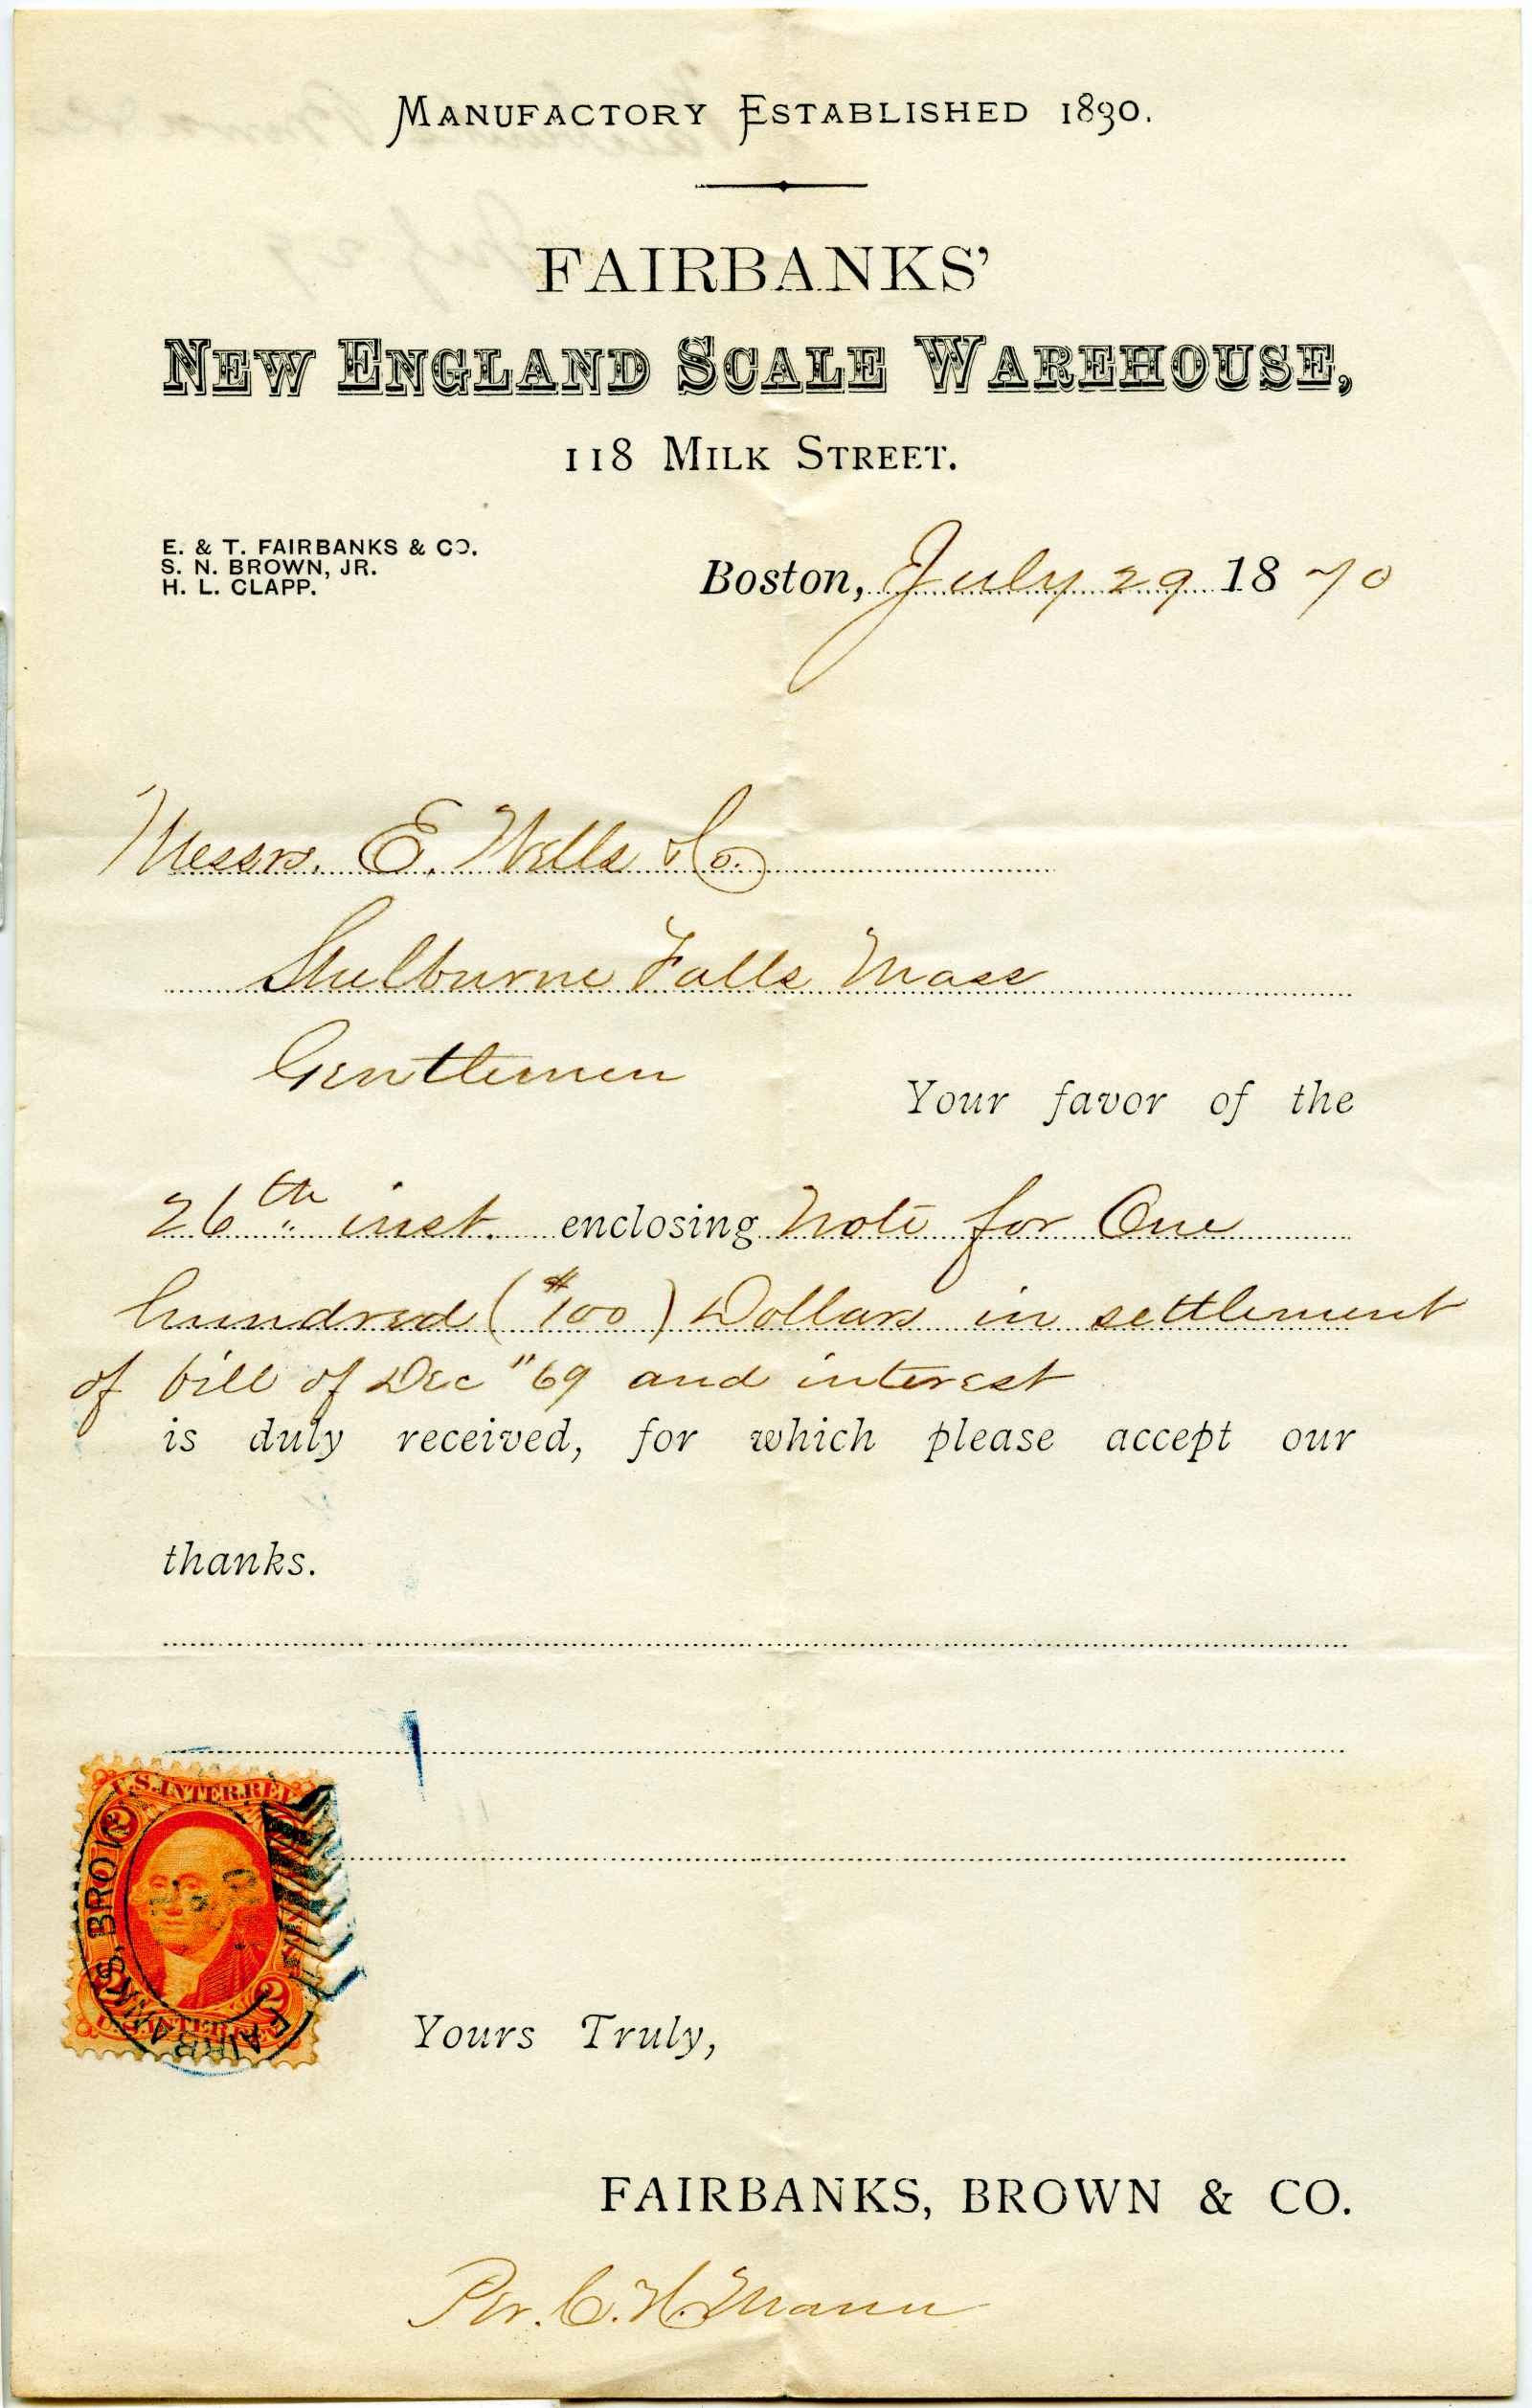 MANUFACTORY ESTABLISHED 1830.
FAIRBANKS'
NEW ENGLAND SCALE WAREHOUSE,
118 MILK STREET.
E. & T. FAIRBANKS & CO.
S. N. BROWN, JR.
H. L. CLAPP.
Boston, July 29 1870
Messrs. E. Wells & Co.
Shelburne Falls Mass
Gentlemen
Your favor of the
26th inst. enclosing Note for One
hundred ($100) Dollars in settlement
of bill of Dec "69 and interest
is duly received, for which please accept our
thanks.
U.S. INTER. REV.
2
FAIRBANKS, BRO
2 2
U.S. INTER. REV.
Yours Truly,
FAIRBANKS, BROWN & CO.
Per. C. H. Mann